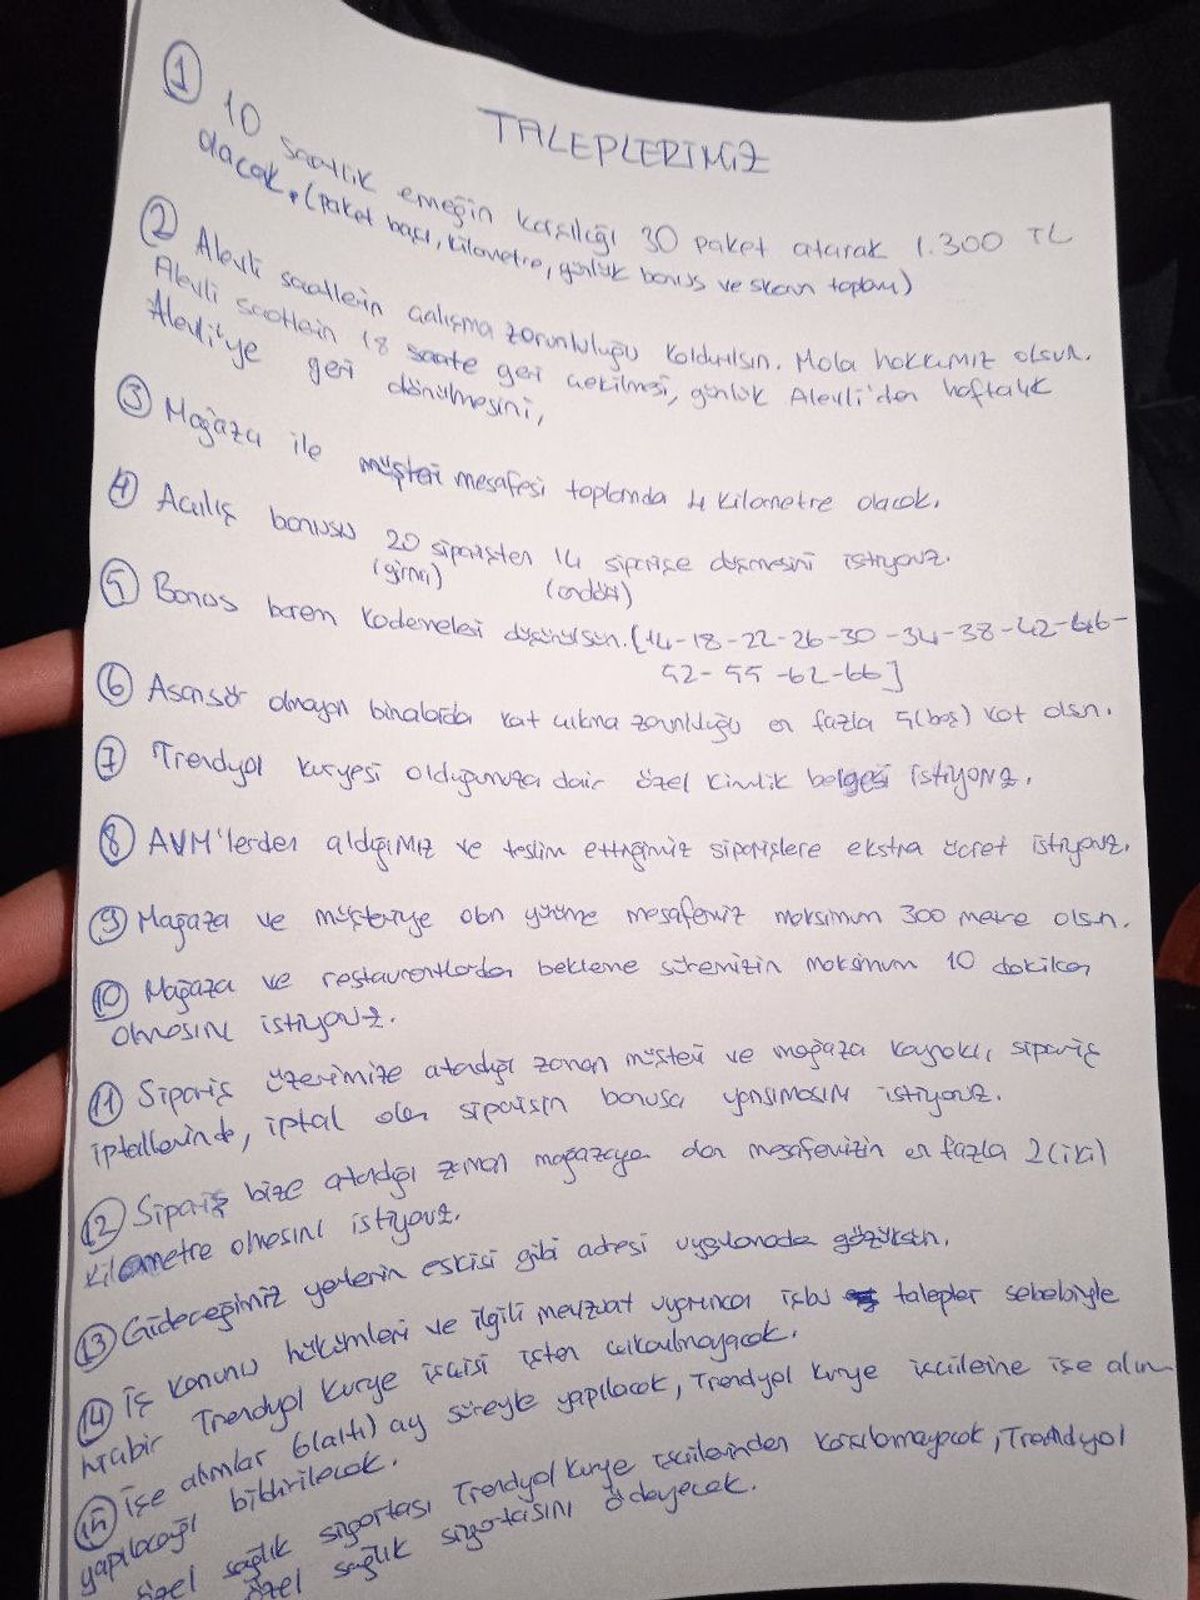 TALEPLERİMİZ
① 10 saatlik emeğin karşılığı 30 paket atarak 1.300 TL
olacak. (paket başı, kilometre, günlük bonus ve skor toplamı)
② Alevli saatlerin çalışma zorunluluğu kaldırılsın. Mola hakkımız olsun.
Alevli saatlerin 18 saate geri çekilmesi, günlük Alevli'den haftalık
Alevli'ye geri dönülmesini,
③ Mağaza ile müşteri mesafesi toplamda 4 kilometre olacak.
④ Açılış bonusu 20 siparişten 14 siparişe düşmesini istiyoruz.
(yirmi) (ondört)
⑤ Bonus barem kademelesi düşürülsün. [14-18-22-26-30-34-38-42-46-
52-55-62-66]
⑥ Asansör olmayan binalarda kat çıkma zorunluluğu en fazla 5(beş) kat olsun.
⑦ Trendyol kuryesi olduğumuza dair özel kimlik belgesi istiyoruz.
⑧ AVM'lerden aldığımız ve teslim ettiğimiz siparişlere ekstra ücret istiyoruz.
⑨ Mağaza ve müşteriye olan yürüme mesafemiz maksimum 300 metre olsun.
⑩ Mağaza ve restaurantlardan bekleme süremizin maksimum 10 dakika
olmasını istiyoruz.
⑪ Sipariş üzerimize atandığı zaman müşteri ve mağaza kaynaklı, sipariş
iptallerinde, iptal olan siparişin bonusa yansımasını istiyoruz.
⑫ Sipariş bize atandığı zaman mağazaya olan mesafemizin en fazla 2(iki)
kilometre olmasını istiyoruz.
⑬ Gideceğimiz yerlerin eskisi gibi adresi uygulamada gözüksün.
⑭ İş kanunu hükümleri ve ilgili mevzuat uyarınca işbu talepler sebebiyle
hiçbir Trendyol kurye işçisi işten çıkarılmayacak.
⑮ İşe alımlar 6(altı) ay süreyle yapılacak, Trendyol kurye işçilerine işe alım
yapılacağı bildirilecek.
özel sağlık sigortası Trendyol kurye işçilerinden karşılanmayacak, Trendyol
özel sağlık sigortasını ödeyecek.